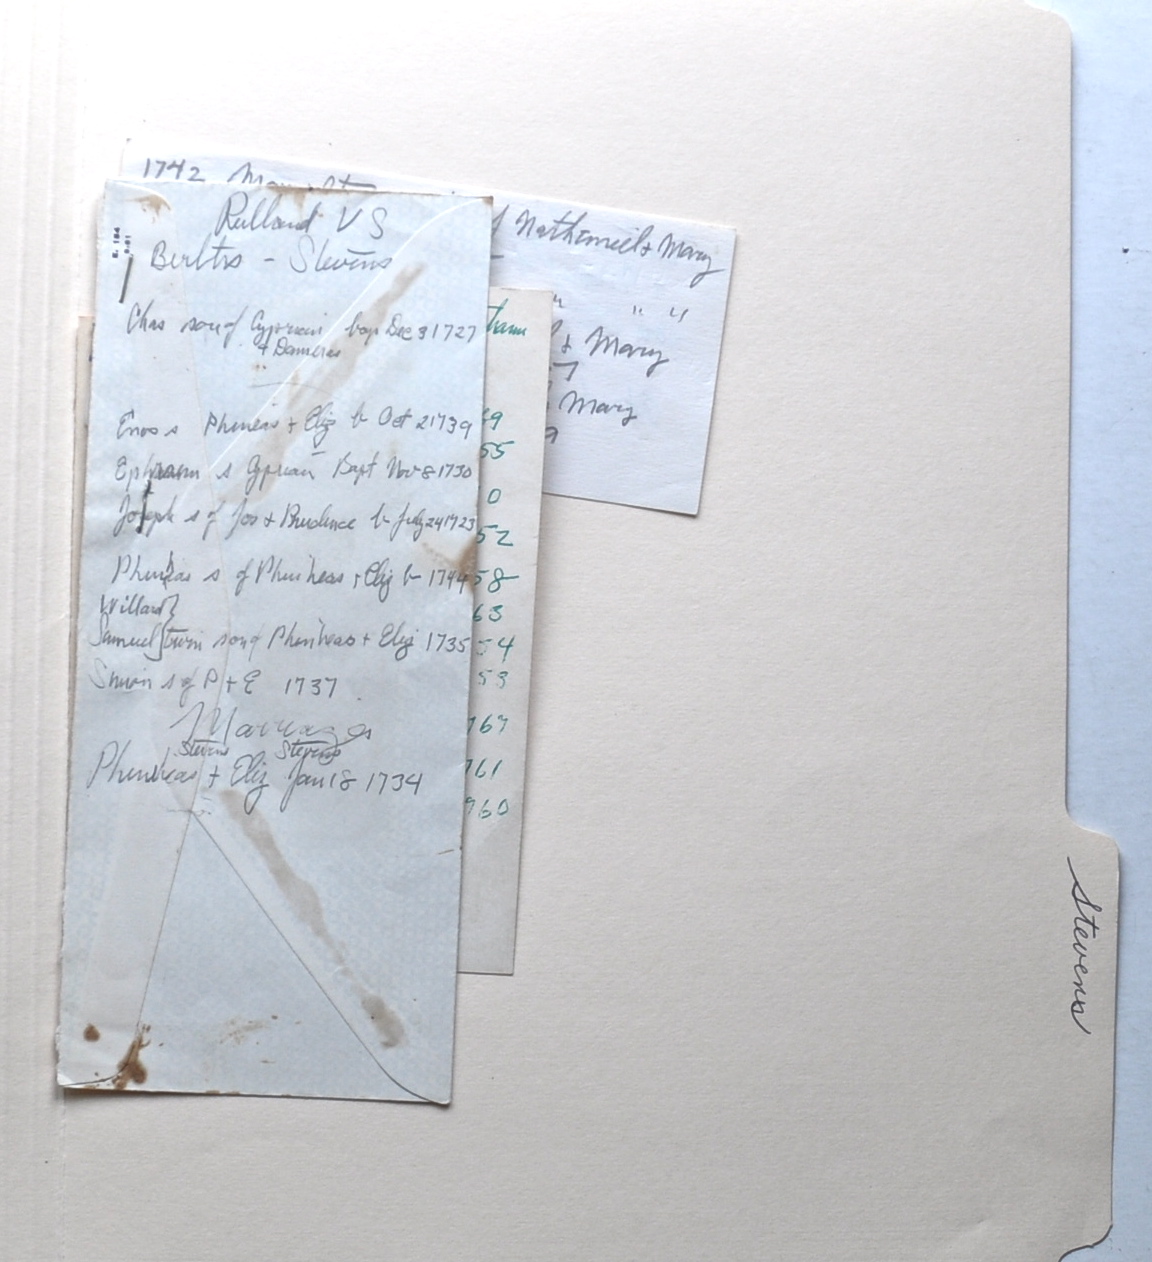 1742
Nathaniel + Mary
" "
+ Mary
Mary
Rutland VS
Births - Stevens
Chas son of Cyprian bap Dec 31 1727
+ Dameras
Enos s Phineas + Eliz b Oct 2 1739
Ephraim s Cyprian Bapt Nov 8 1730
Joseph s of Jos + Prudence b July 24 1723
Phineas s of Phinheas + Eliz b 1744
Willard }
Samuel } twin son of Phinheas + Eliz 1735
s of P + E 1737
Marriages
Stevens Stevens
Phinheas + Eliz Jan 18 1734
55
0
52
58
63
54
53
767
761
960
Stevens